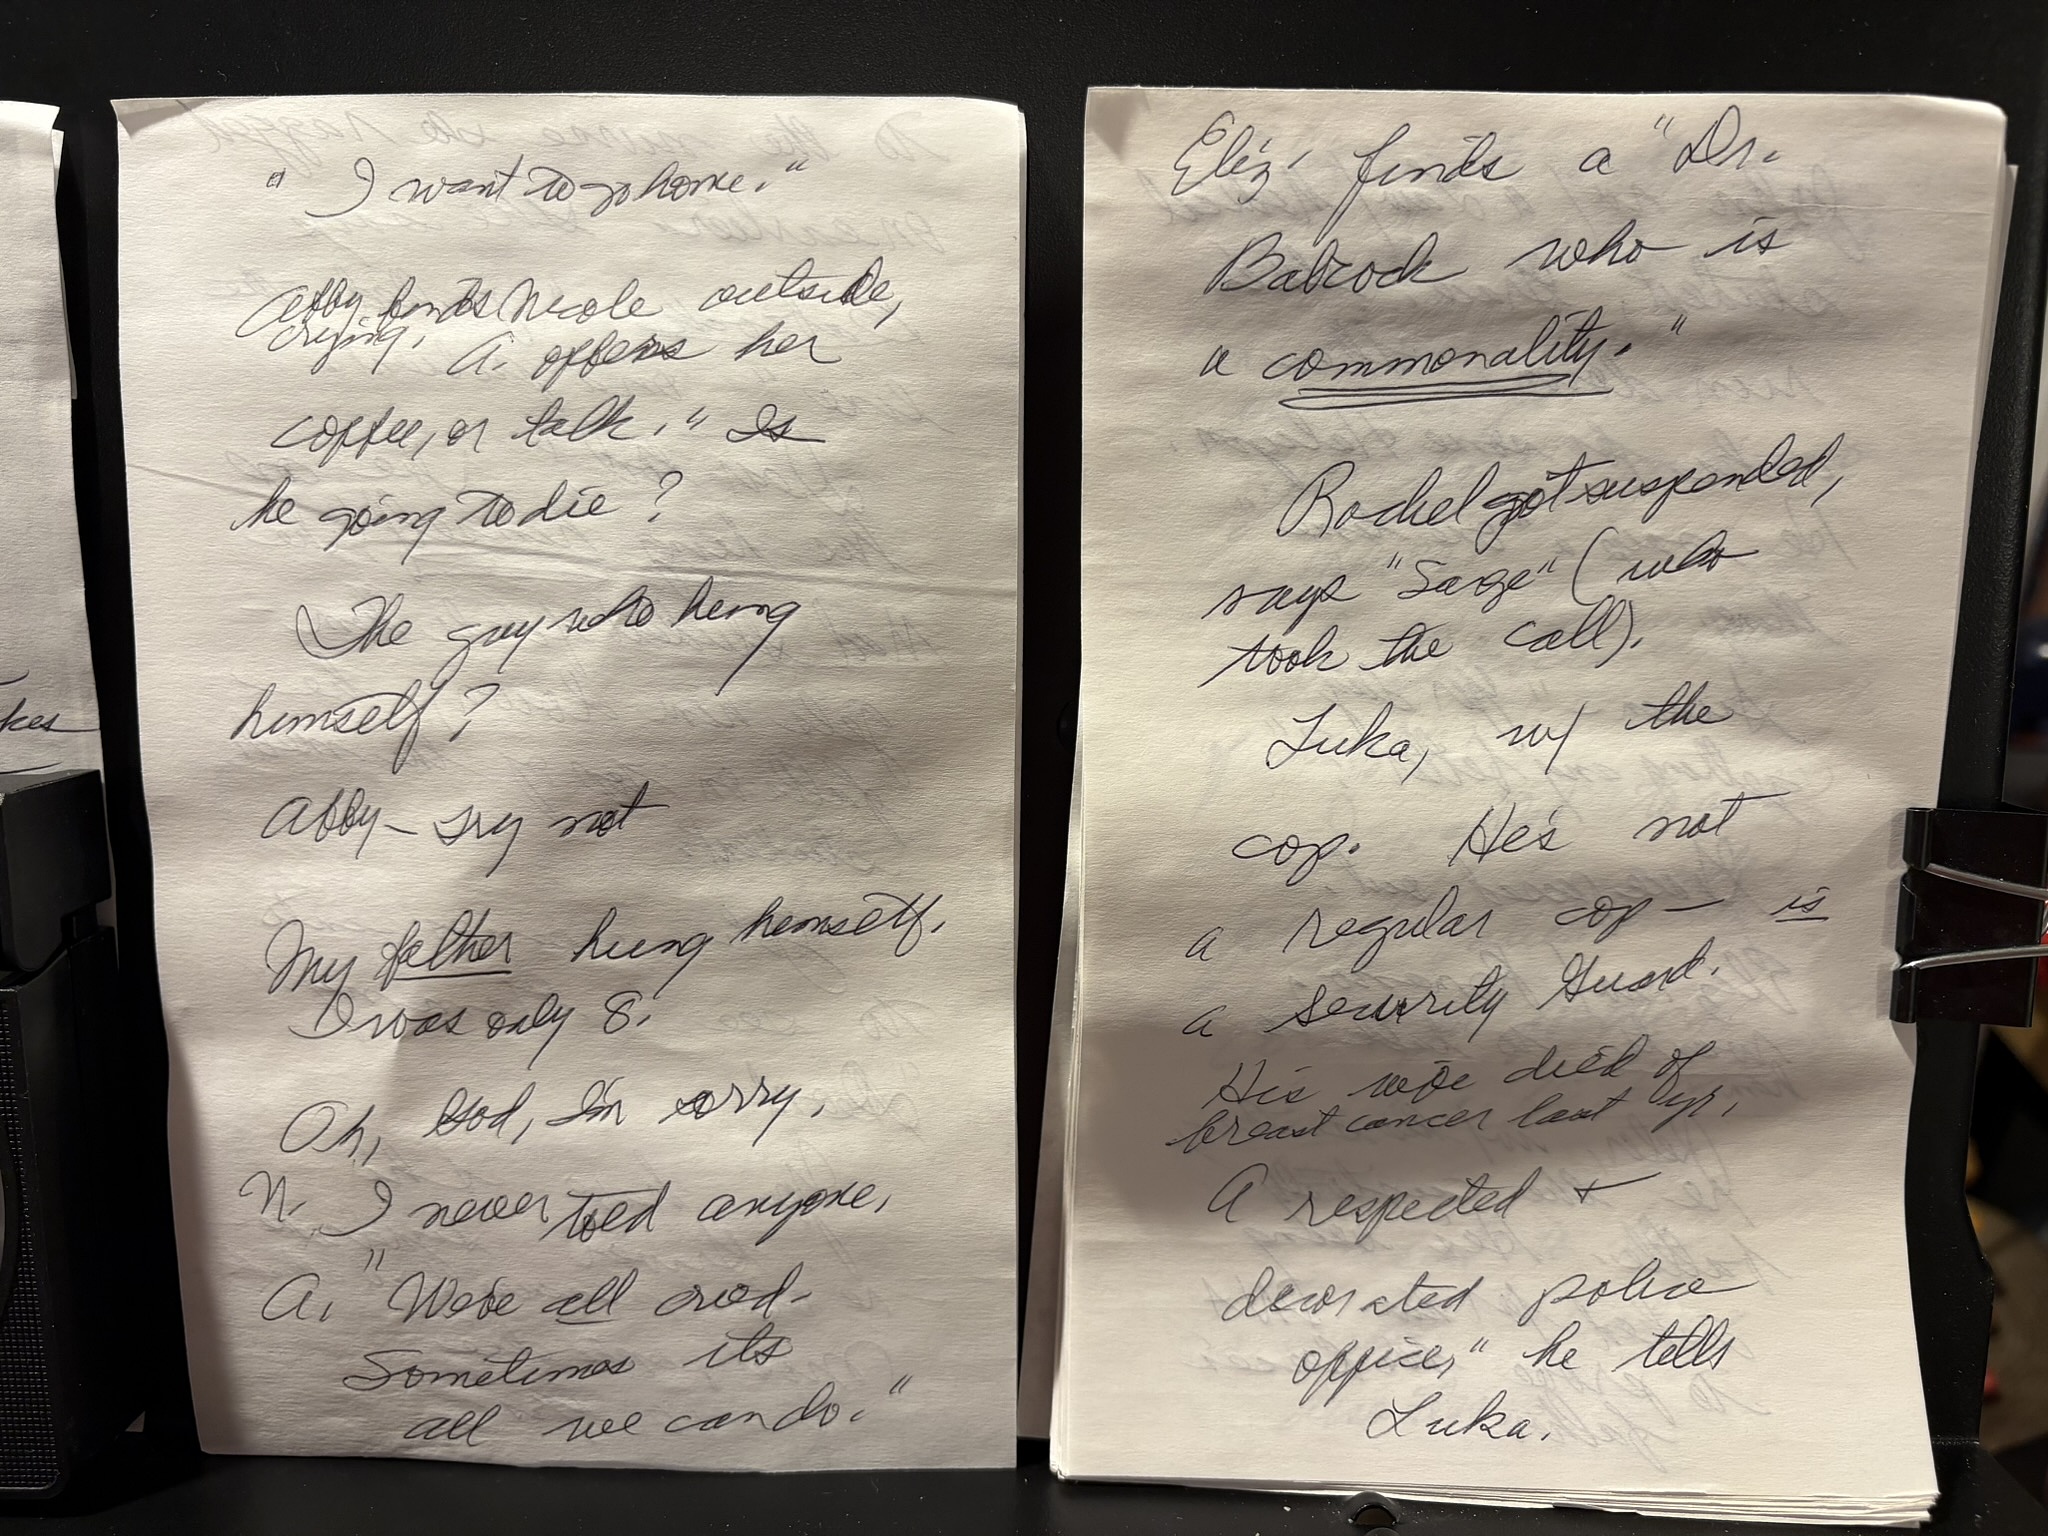 " I want to go home."
Abby finds Nicole outside,
crying. A. offers her
coffee, or talk. " Is
he going to die?
The guy who hung
himself?
Abby — try not
My father hung himself.
I was only 8.
Oh, God, I'm sorry.
N. I never told anyone.
A. " We've all cried-
Sometimes its
all we can do."
kes
Eliz. finds a "Dr.
Babcock who is
a commonality."
Rachel got suspended,
says "Sarge" (who
took the call).
Luka, w/ the
cop. He's not
a regular cop — is
a security Guard.
His wife died of
breast cancer last yr.
A respected +
decorated police
officer," he tells
Luka.